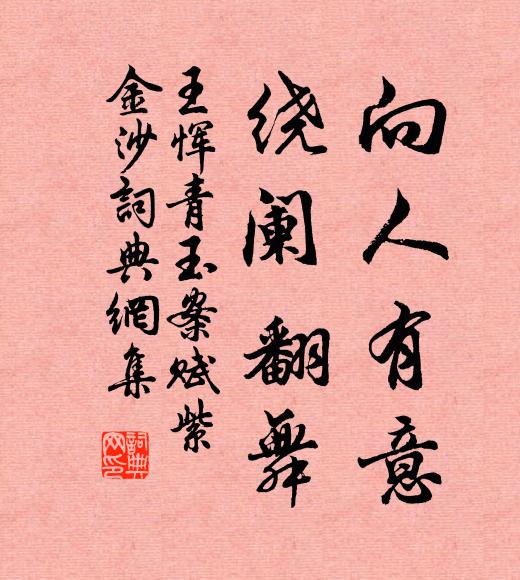 向人有意
绕阑翻舞
王恽青玉案赋紫
金沙詞典網集
詞典
网印